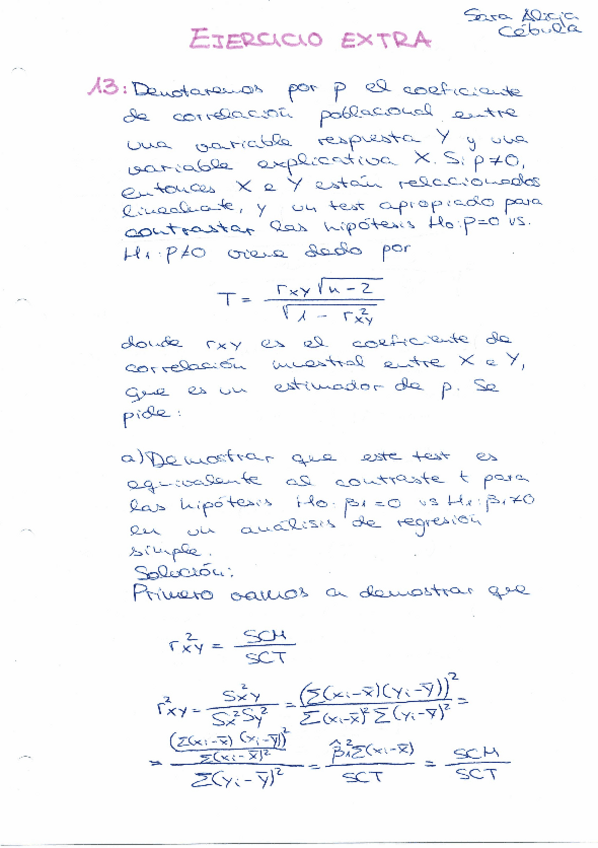 Sara Alicja
Cebula
EJERCICIO EXTRA
13: Denotaremos por ρ el coeficiente
de correlación poblacional entre
una variable respuesta Y y una
variable explicativa X. Si ρ≠0,
entonces X e Y están relacionados
linealmente, y un test apropiado para
contrastar las hipótesis H₀:ρ=0 vs.
H₁:ρ≠0 viene dado por
T = rxy√n-2 / √1 - r²xy
donde rxy es el coeficiente de
correlación muestral entre X e Y,
que es un estimador de ρ. Se
pide:
a) Demostrar que este test es
equivalente al contraste t para
las hipótesis H₀: β₁=0 vs H₁: β₁≠0
en un análisis de regresión
simple.
Solución:
Primero vamos a demostrar que
r²xy = SCM / SCT
r²xy = S²xy / Sx²Sy² = (Σ(xi-x̄)(yi-ȳ))² / Σ(xi-x̄)² Σ(yi-ȳ)² =
= ((Σ(xi-x̄)(yi-ȳ))² / Σ(xi-x̄)²) / Σ(yi-ȳ)² = β̂₁²Σ(xi-x̄) / SCT = SCM / SCT